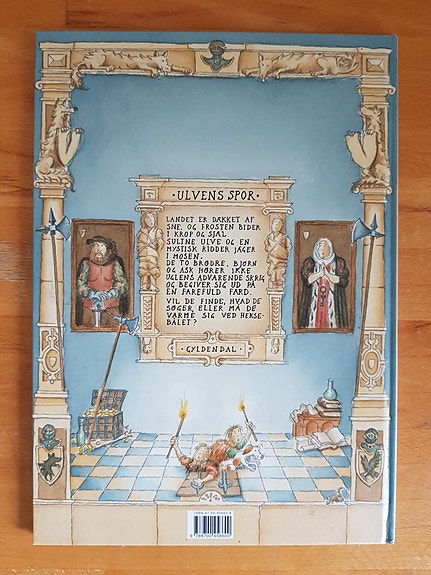 · ULVENS SPOR ·
LANDET ER DÆKKET AF
SNE, OG FROSTEN BIDER
I KROP OG SJÆL.
SULTNE ULVE OG EN
MYSTISK RIDDER JAGER
I MOSEN.
DE TO BRØDRE, BJØRN
OG ASK HØRER IKKE
UGLENS ADVARENDE SKRIG
OG BEGIVER SIG UD PÅ
EN FAREFULD FÆRD.
VIL DE FINDE, HVAD DE
SØGER, ELLER MÅ DE
VARME SIG VED HEKSE-
BÅLET?
· GYLDENDAL ·
9 788700 456600